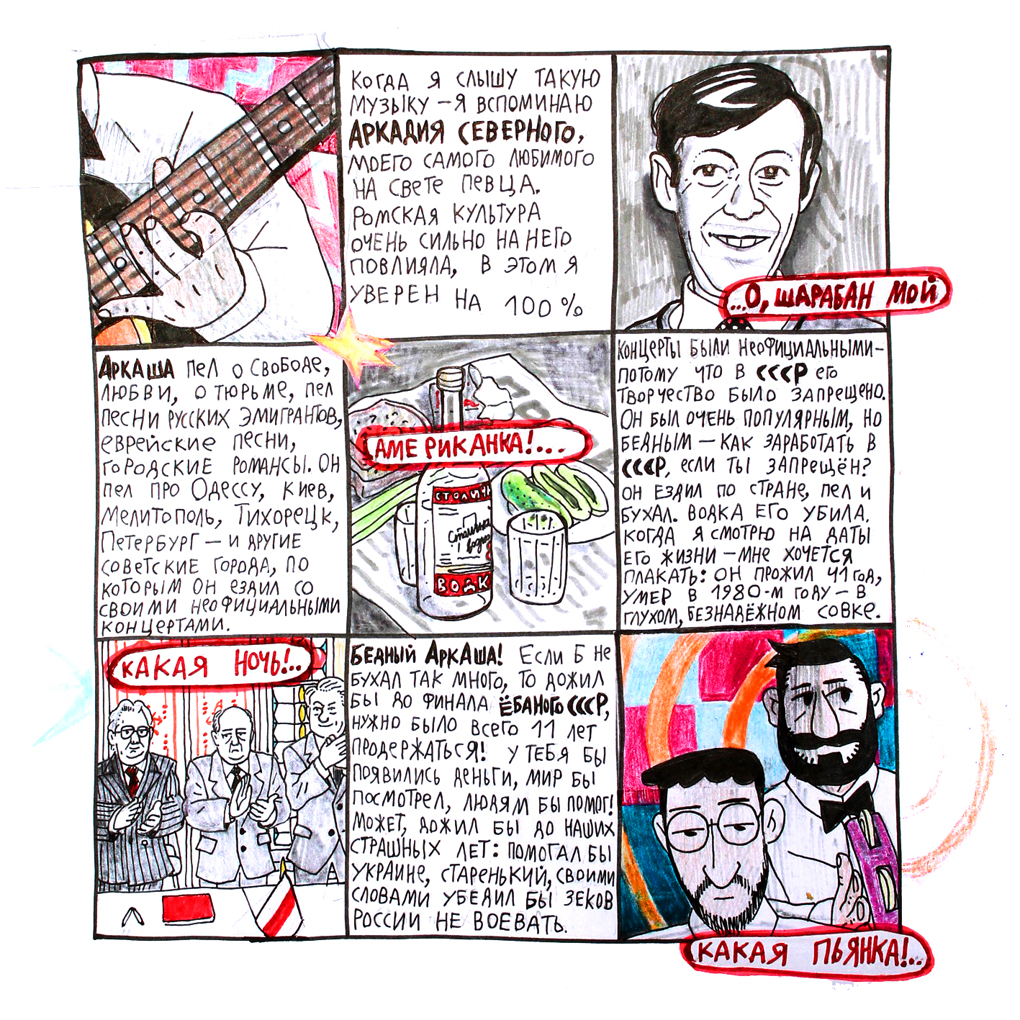 КОГДА Я СЛЫШУ ТАКУЮ
МУЗЫКУ – Я ВСПОМИНАЮ
АРКАДИЯ СЕВЕРНОГО,
МОЕГО САМОГО ЛЮБИМОГО
НА СВЕТЕ ПЕВЦА.
РОМСКАЯ КУЛЬТУРА
ОЧЕНЬ СИЛЬНО НА НЕГО
ПОВЛИЯЛА, В ЭТОМ Я
УВЕРЕН НА 100%
...О, ШАРАБАН МОЙ
АРКАША ПЕЛ О СВОБОДЕ,
ЛЮБВИ, О ТЮРЬМЕ, ПЕЛ
ПЕСНИ РУССКИХ ЭМИГРАНТОВ,
ЕВРЕЙСКИЕ ПЕСНИ,
ГОРОДСКИЕ РОМАНСЫ. ОН
ПЕЛ ПРО ОДЕССУ, КИЕВ,
МЕЛИТОПОЛЬ, ТИХОРЕЦК,
ПЕТЕРБУРГ – И ДРУГИЕ
СОВЕТСКИЕ ГОРОДА, ПО
КОТОРЫМ ОН ЕЗДИЛ СО
СВОИМИ НЕОФИЦИАЛЬНЫМИ
КОНЦЕРТАМИ.
АМЕРИКАНКА!...
СТОЛИЧН
ВОДК
КОНЦЕРТЫ БЫЛИ НЕОФИЦИАЛЬНЫМИ–
ПОТОМУ ЧТО В СССР ЕГО
ТВОРЧЕСТВО БЫЛО ЗАПРЕЩЕНО.
ОН БЫЛ ОЧЕНЬ ПОПУЛЯРНЫМ, НО
БЕДНЫМ – КАК ЗАРАБОТАТЬ В
СССР, ЕСЛИ ТЫ ЗАПРЕЩЁН?
ОН ЕЗДИЛ ПО СТРАНЕ, ПЕЛ И
БУХАЛ. ВОДКА ЕГО УБИЛА.
КОГДА Я СМОТРЮ НА ДАТЫ
ЕГО ЖИЗНИ – МНЕ ХОЧЕТСЯ
ПЛАКАТЬ: ОН ПРОЖИЛ 41 ГОД,
УМЕР В 1980-М ГОДУ – В
ГЛУХОМ, БЕЗНАДЁЖНОМ СОВКЕ.
КАКАЯ НОЧЬ!..
БЕДНЫЙ АРКАША! ЕСЛИ Б НЕ
БУХАЛ ТАК МНОГО, ТО ДОЖИЛ
БЫ ДО ФИНАЛА ЁБАНОГО СССР,
НУЖНО БЫЛО ВСЕГО 11 ЛЕТ
ПРОДЕРЖАТЬСЯ! У ТЕБЯ БЫ
ПОЯВИЛИСЬ ДЕНЬГИ, МИР БЫ
ПОСМОТРЕЛ, ЛЮДЯМ БЫ ПОМОГ!
МОЖЕТ, ДОЖИЛ БЫ ДО НАШИХ
СТРАШНЫХ ЛЕТ: ПОМОГАЛ БЫ
УКРАИНЕ, СТАРЕНЬКИЙ, СВОИМИ
СЛОВАМИ УБЕДИЛ БЫ ЗЕКОВ
РОССИИ НЕ ВОЕВАТЬ.
КАКАЯ ПЬЯНКА!..